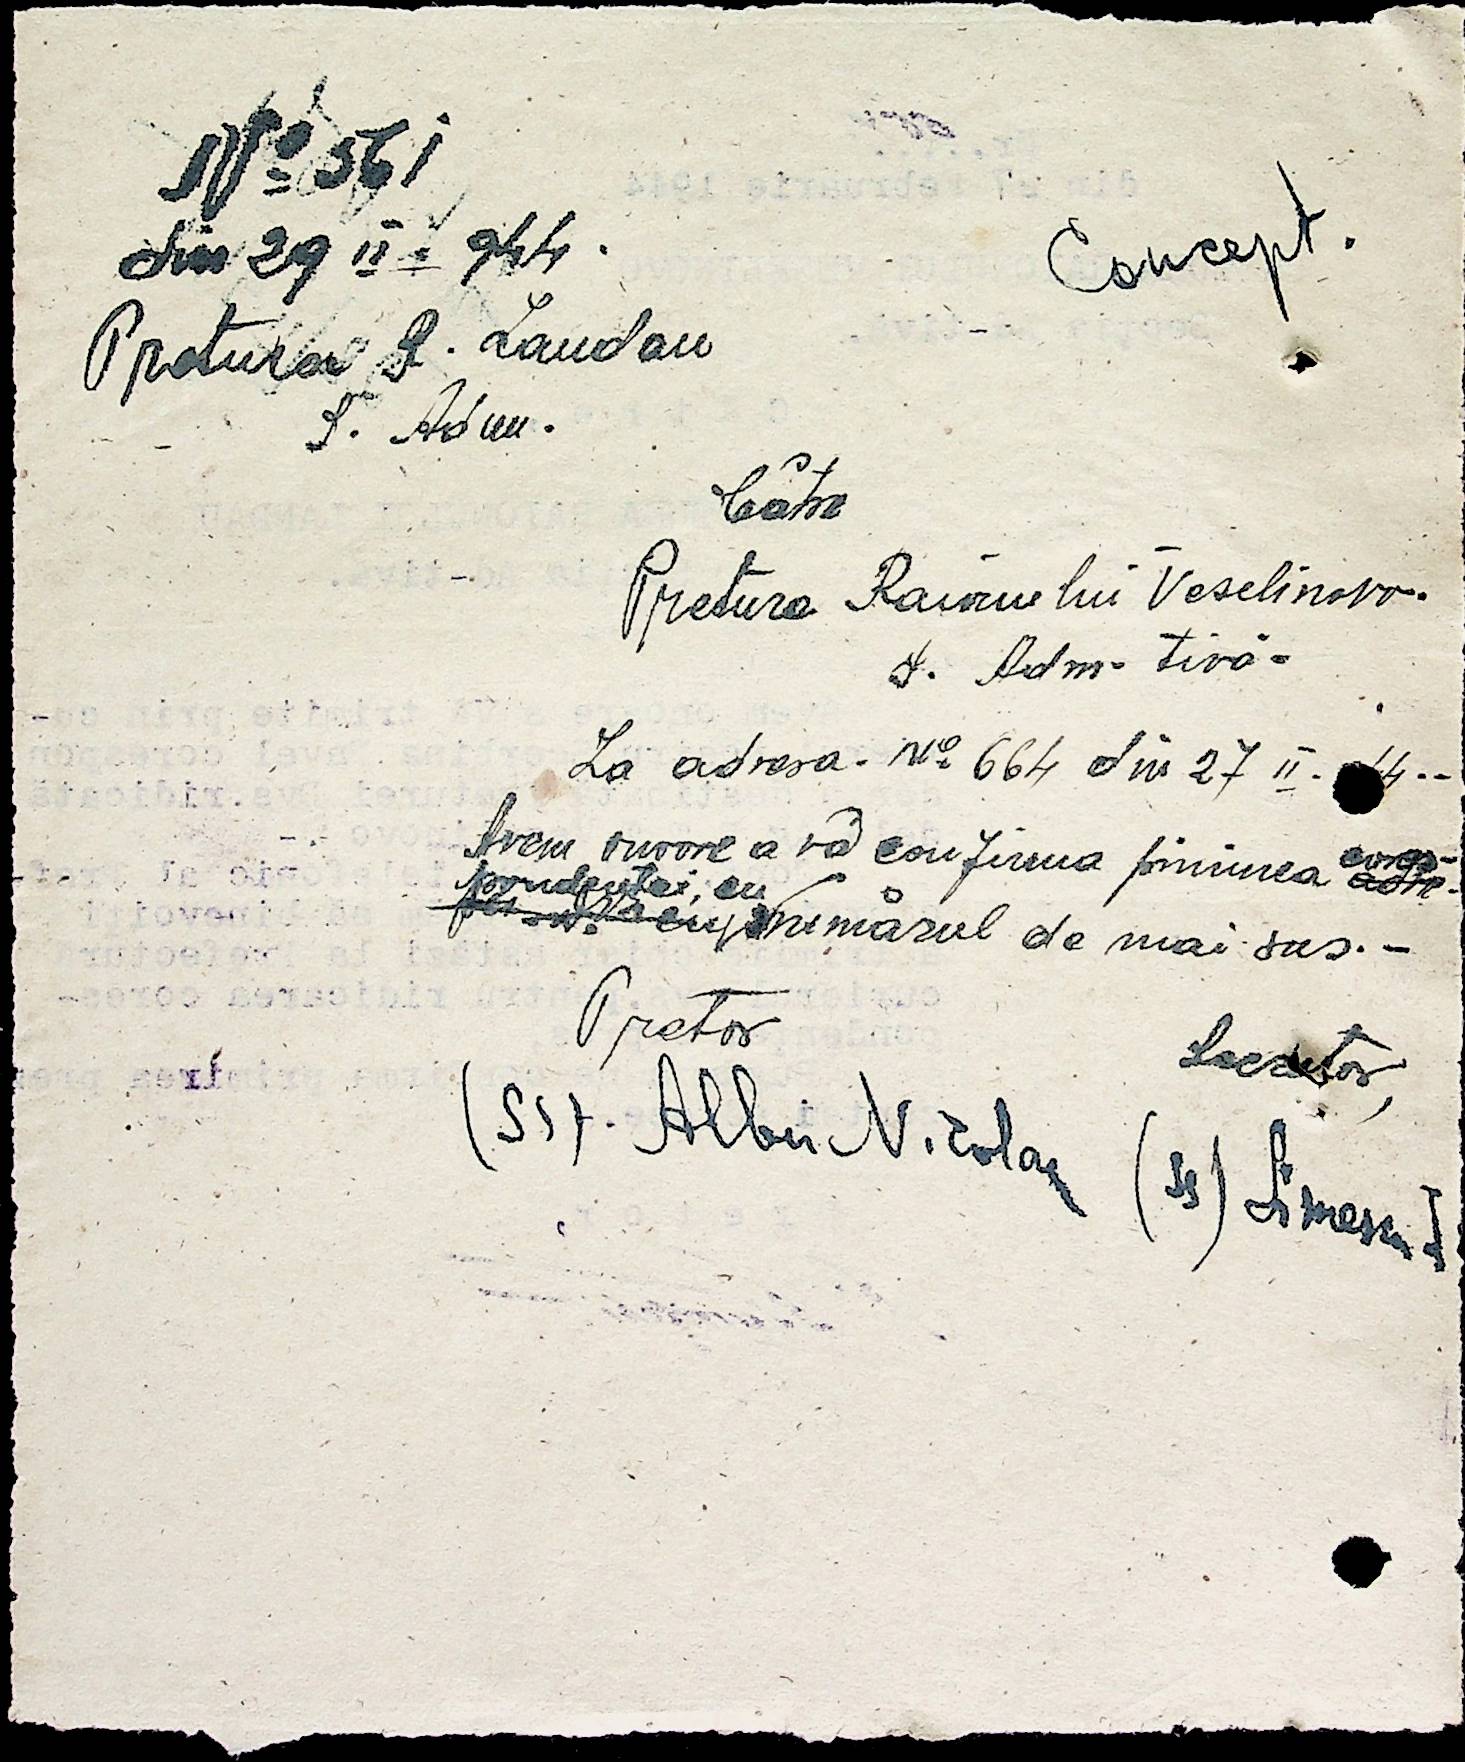 No 561
din 29 II 944.
Pretura R. Landau
S. Adm.
Concept.
Cätre
Pretura Raionului Veselinovo.
S. Adm-tivă-
La adresa No 664 din 27 II. 44.-
Avem onoare a vă confirma primirea cores-
pondenței, cu
numărul de mai sus.-
Pretor
Secretor,
(SS). Albu Nicolae
(ss) Simescu I